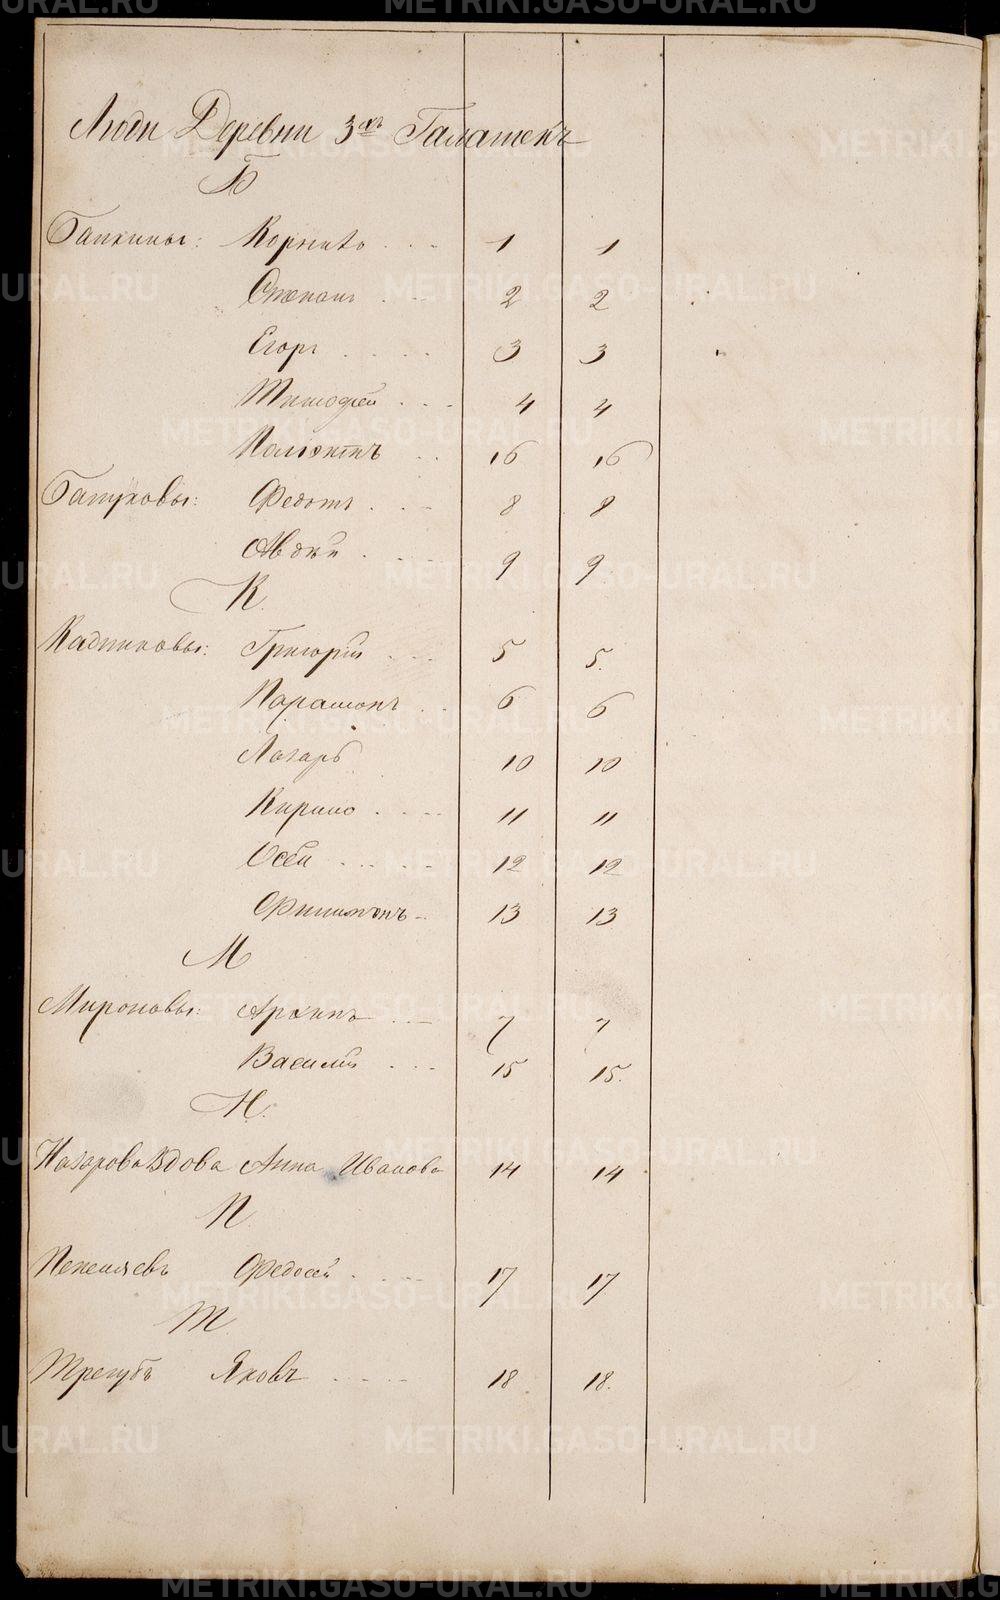 Люди Деревни 3хъ Галашекъ
Б
Бапкины: Корнило 1 1
Степанъ 2 2
Егоръ 3 3
Тимофей 4 4
Полiэктъ 16 16
Батуковы: Федотъ 8 8
Авдѣй 9 9
К
Кадниковы: Григорiй 5 5.
Парамонъ 6 6
Лазарь 10 10
Кирило 11 11
Осей 12 12
Филимонъ 13 13
М
Мироновы: Архипъ 7 7
Василiй 15 15.
Н.
Назарова Вдова Анна Иванова 14 14
П
Федосей 17 17
Т
Трегубъ Яковъ 18 18.
METRIKI.GASO-URAL.RU